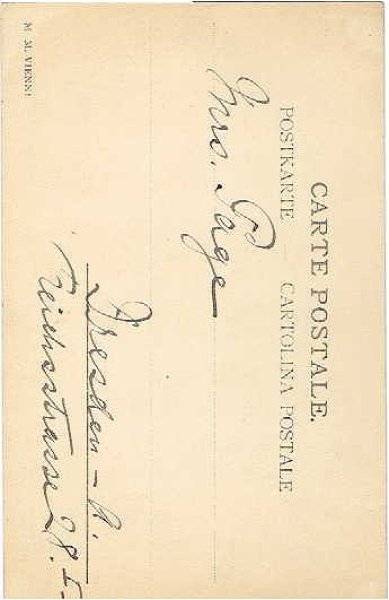 CARTE POSTALE.
POSTKARTE — CARTOLINA POSTALE
Mrs. Page
Dresden - A.
Reichsstrasse 28. I.
M. M. VIENNE